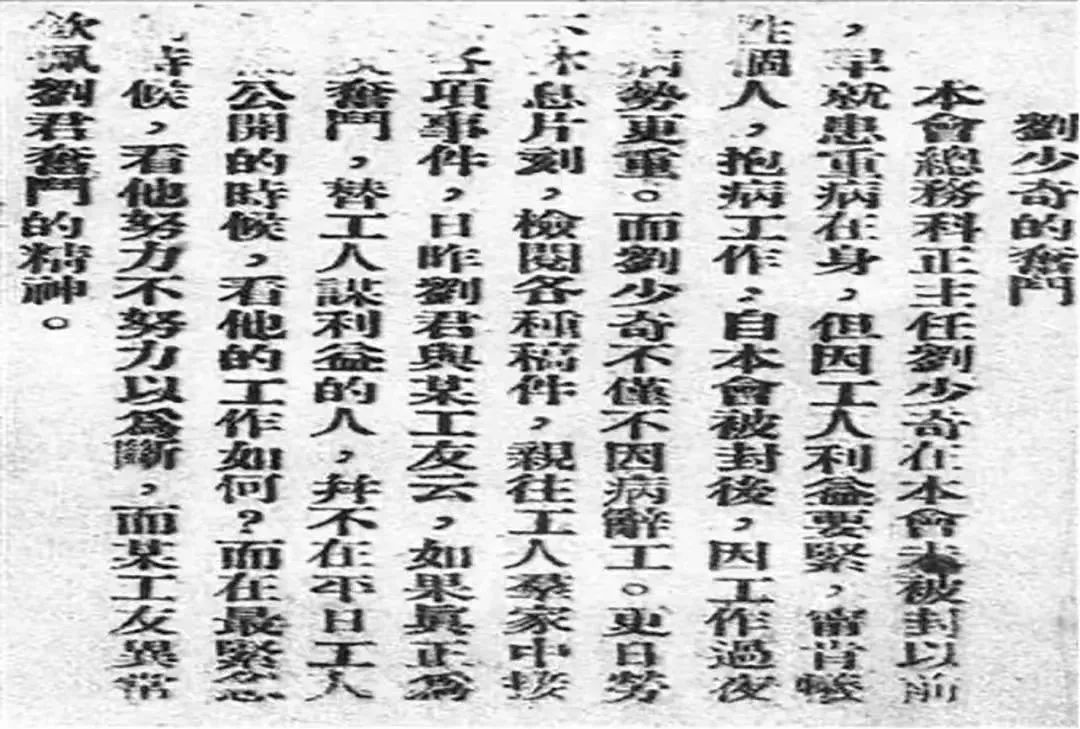 劉少奇的奮鬥
本會總務科正主任劉少奇在本會未被封以前
，早就患重病在身，但因工人利益要緊，甯肯犧
牲個人，抱病工作，自本會被封後，因工作過夜
病勢更重。而劉少奇不僅不因病辭工。更日勞
不休息片刻，檢閱各種稿件，親往工人羣家中接
項事件，日昨劉君與某工友云，如果眞正爲
奮鬥，替工人謀利益的人，幷不在平日工人
公開的時候，看他的工作如何？而在最緊急
時候，看他努力不努力以爲斷，而某工友異常
欽佩劉君奮鬥的精神。